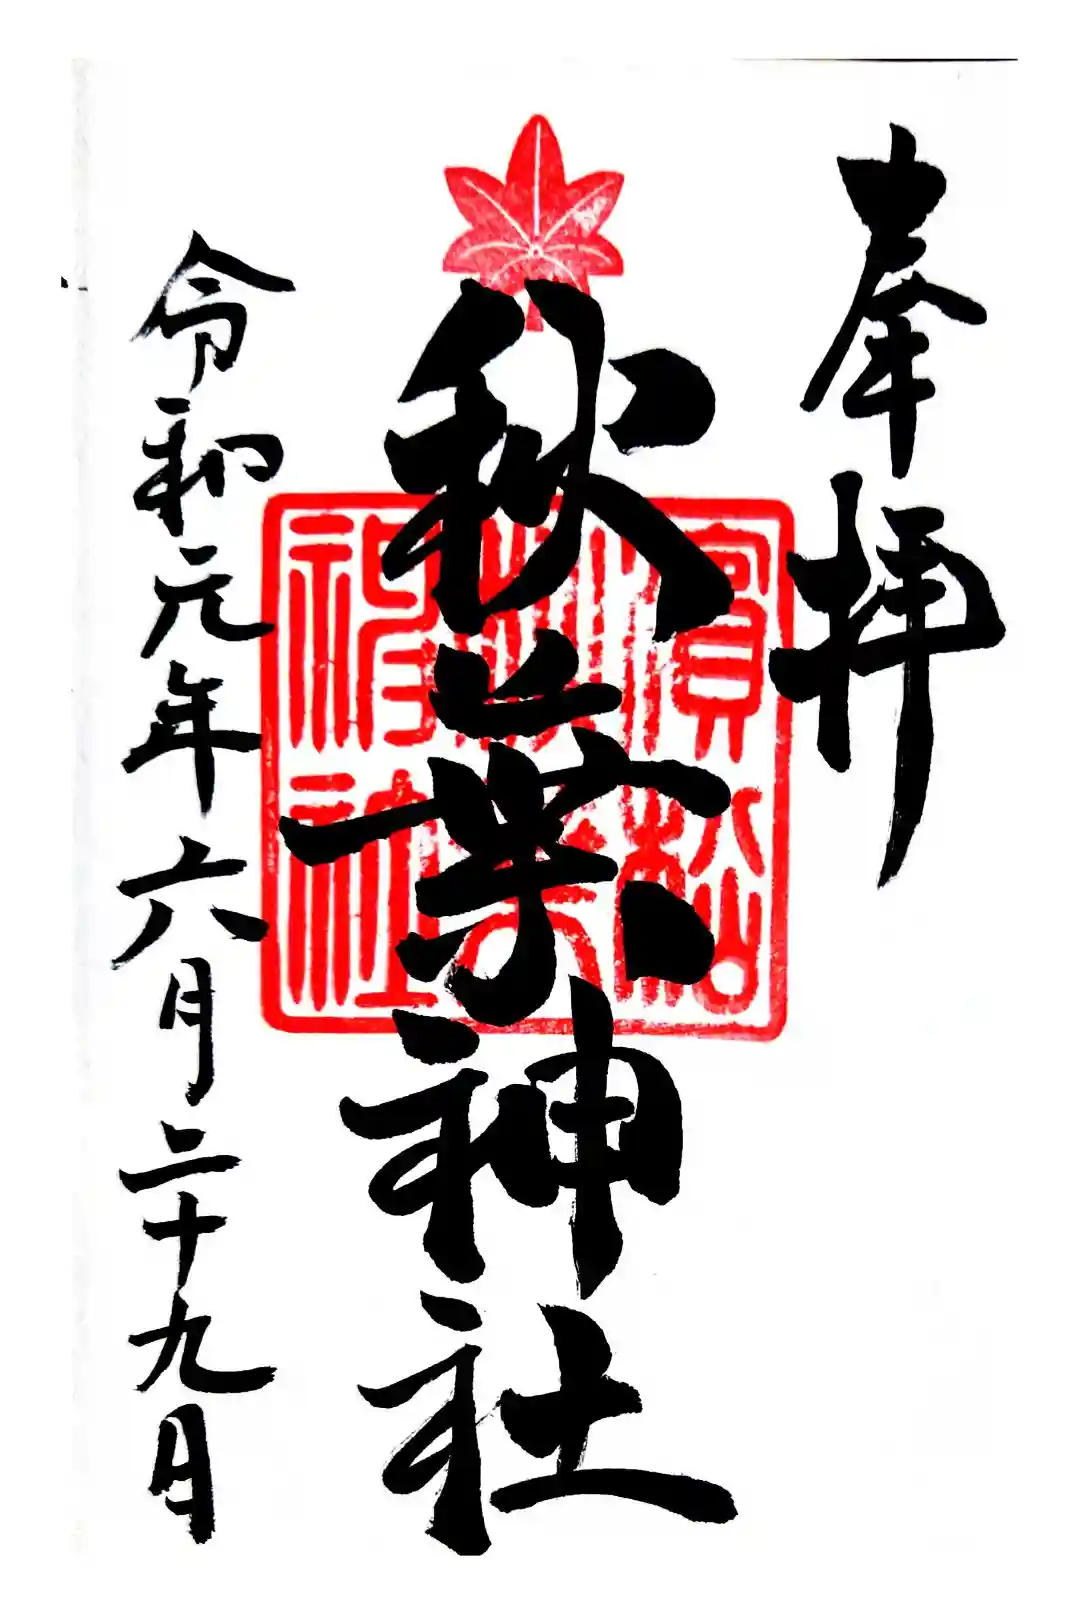 奉拝
秋葉神社
濱松
秋葉
神社
令和元年六月二十九日